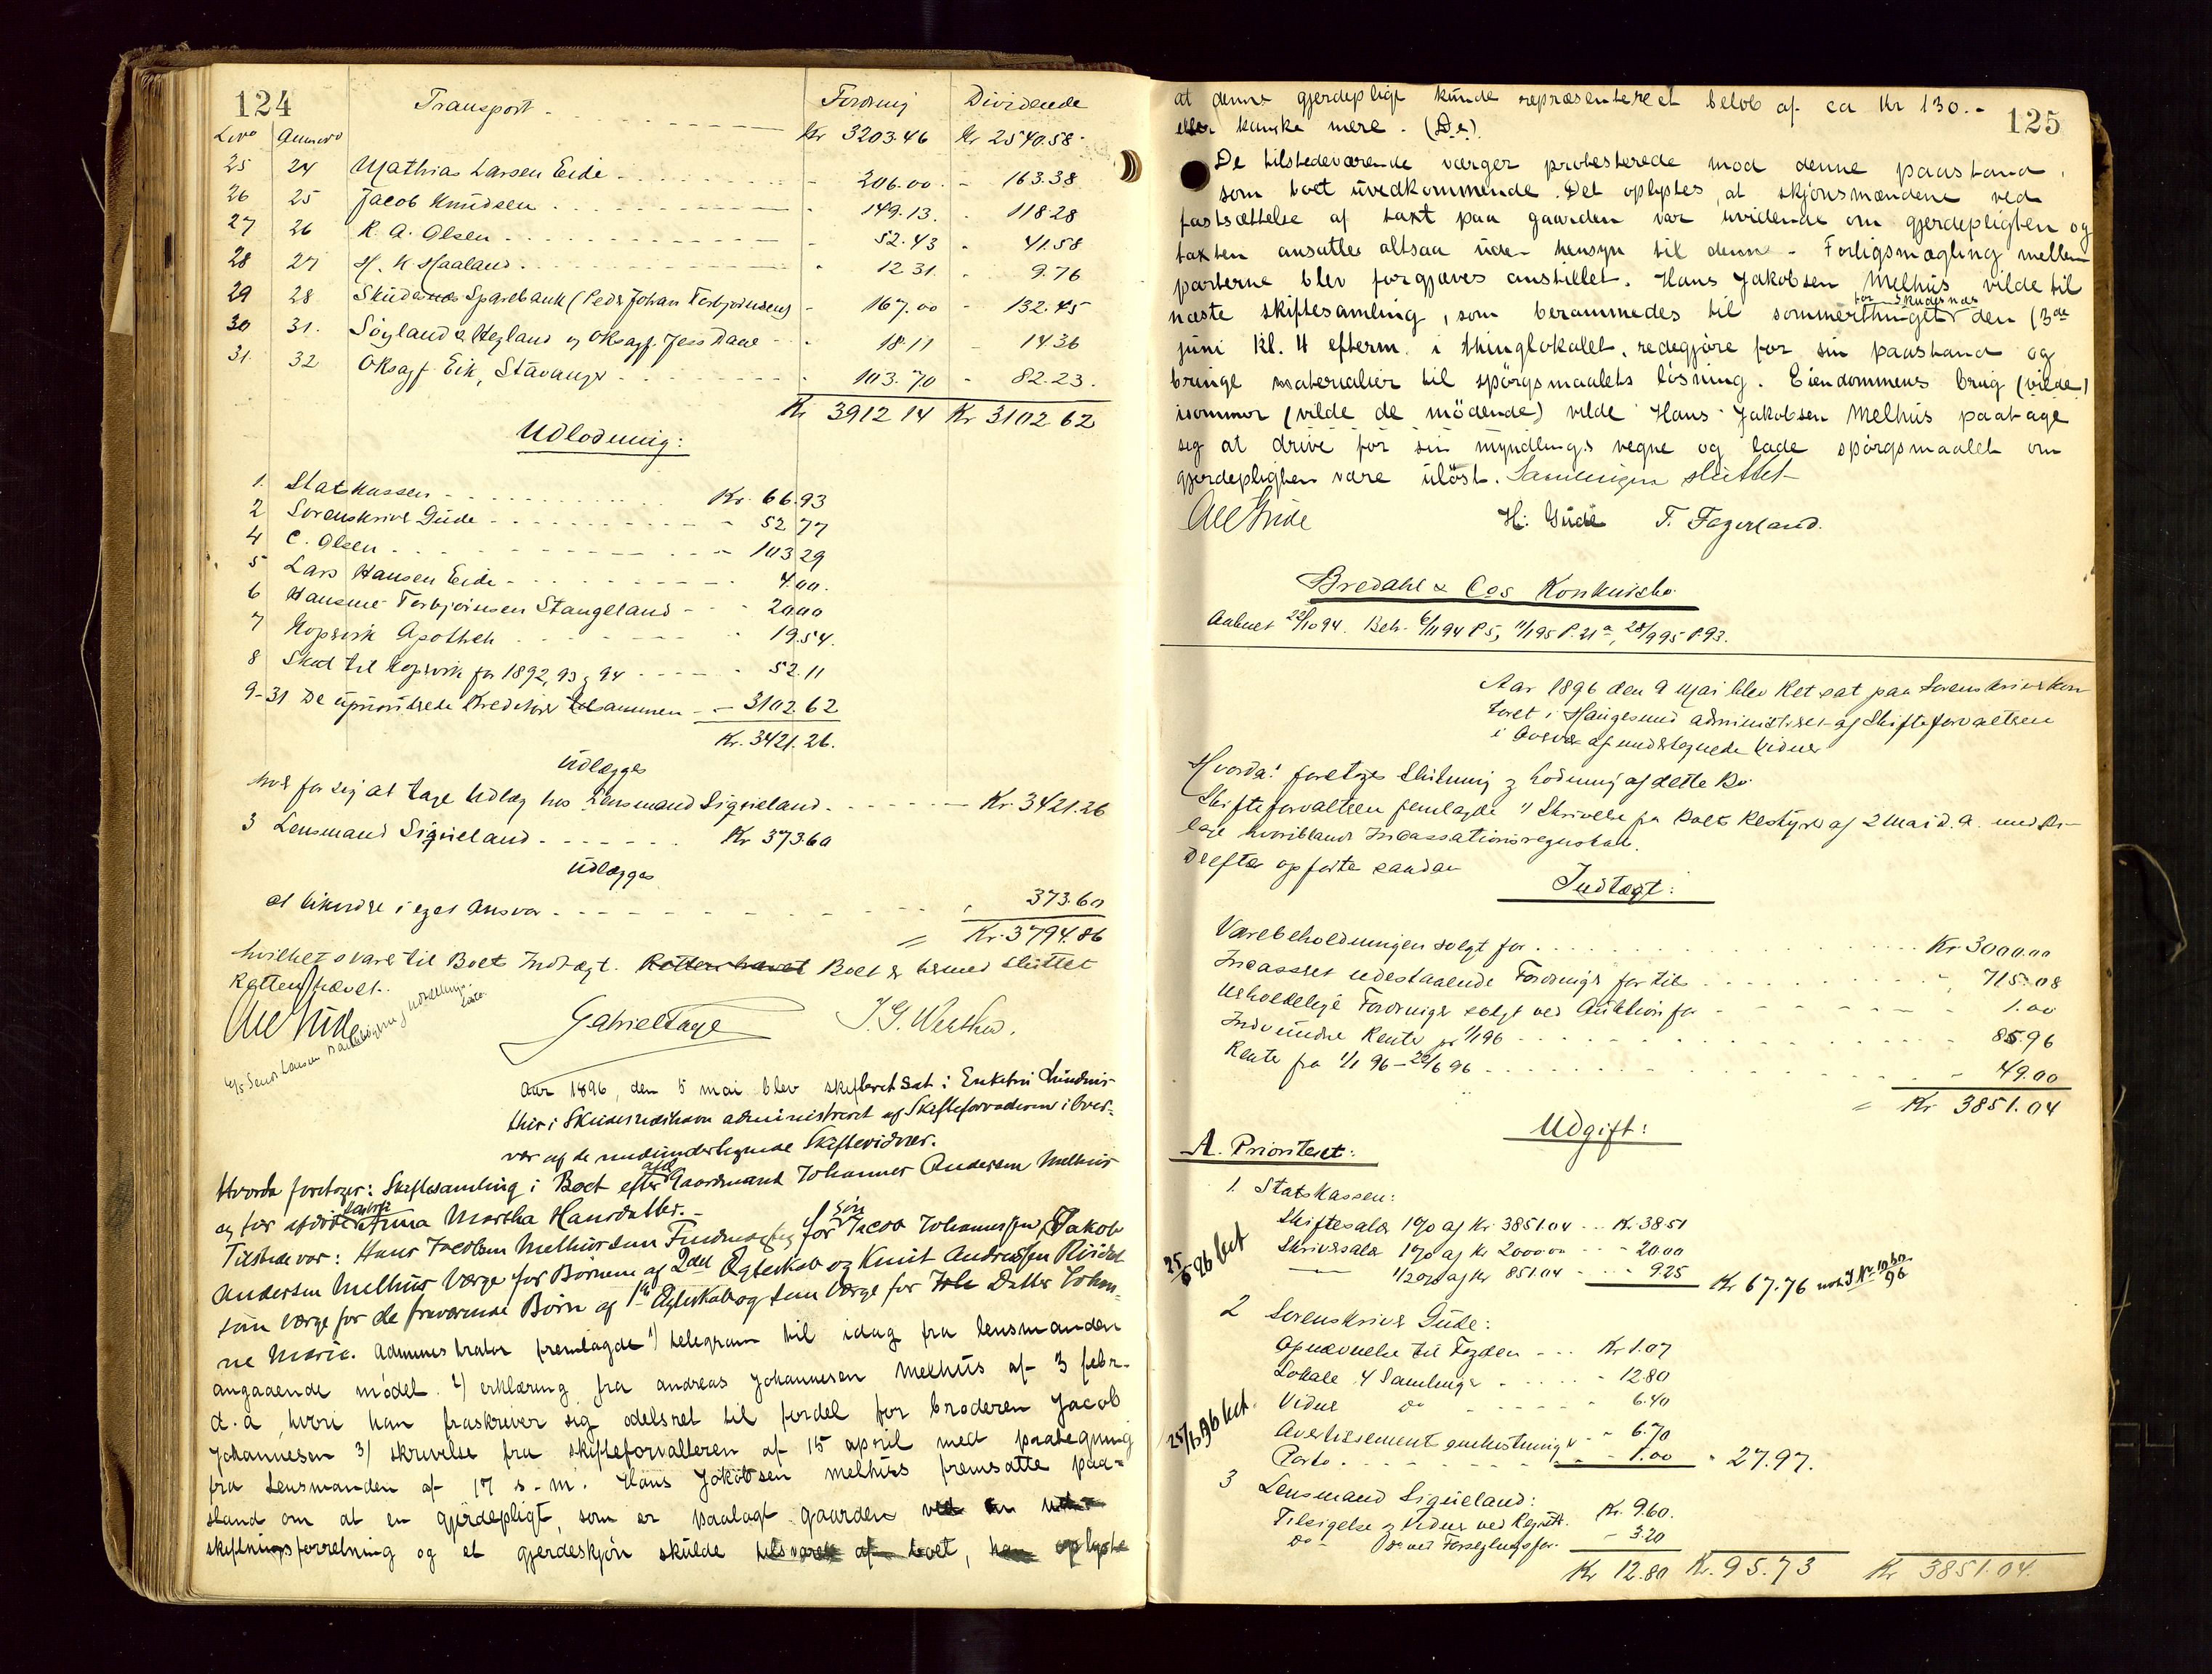 124
Transport - Fordring Dividende
Lno Anmno Kr 3203.46 Kr 2540.58
25 24 Mathias Larsen Eide - 206.00 - 163.38
26 25 Jacob Knudsen - 149.13 - 118.28
27 26 R. A. Olsen - 52.43 - 41.58
28 27 H. K Haaland - 12 31 - 9.76
29 28 Skudenæs Sparebank (Peder Johan Torbjørnsen) - 167.00 - 132.45
30 31. Söyland & Hegland og Oksagf. Jess Dane - 18.11 - 14.36
31. 32 Oksagf. Eik, Stavanger - 103.70 - 82.23.
Kr 3912 14 Kr 3102 62
Udlodning:
1. Statskassen - Kr. 66.93
2 Sorenskriver Gude - 52 77
4 C. Olsen - 103 29
5 Lars Hansen Eide - 4.00.
6 Hansine Torbjørnsen Stangeland - 20.00
7 Kopervik Apothek - 19.54.
8 Skat til Kopervik for 1892, 93 og 94 - 52.11
9-31 De uprioriterede Kreditorer tilsammen - 3102.62
Kr. 3421.26.
Udlægges
hver for sig at tage Udlæg hos Lensmand Sigueland - Kr. 3421.26
3 Lensmand Sigueland - Kr 373.60
Udlægges
at likvidere i eget Ansvar - 373.60
= Kr. 3794.86
hvilket svarer til Boets Indtægt. Retten hævet Boet er hermed sluttet
Retten hævet.
Gabriel Tage
Aar 1896, den 5 mai blev skifteret sat i Enkefru
i Skudesneshavn administreret af Skifteforvalteren i Over-
vær af de medundertegnede Skiftevidner.
Hvorda foretoges: Skiftesamling i Boet efter afdøde Gaardmand Johannes Andersen Melhus
og før afdøde hustru Anna Martha Hansdatter. -
Tilstede var: Hans Jacobsen Melhus som for søn Jacob Johannessen, Jakob
Andersen Melhus Værge for Børnene af 2det Ægteskab og Knut Andreassen
som værge for de fraværende Børn af 1ste Ægteskab og som Værge for Datter Johan-
ne Marie. Administrator fremlagde 1) telegram til idag fra lensmanden
angaaende mødet. 2) erklæring fra Andreas Johannesen Melhus af 3 febr.
d. a, hvori han fraskriver sig odelsret til fordel for broderen Jacob
Johannesen 3) skrivelse fra skifteforvalteren af 15 april med paategning
fra Lensmanden af 17 s. m. Hans Jakobsen Melhus fremsatte paa-
stand om at en gjerdepligt, som er paalagt gaarden ved en
skiftningsforretning og et gjerdeskjön skulde tilsvares af boet, han oplyste
125
at denne gjerdepligt kunde repræsentere et belöb af ca Kr 130.-
eller kanske mere. (De)
De tilstedeværende værger protesterede mod denne paastand,
som boet uvedkommende. Det oplystes, at skjönsmændene ved
fastsættelse af taxt paa gaarden var uvidende om gjerdepligten og
taxten ansattes altsaa uden hensyn til denne - Forligsmægling mellem
parterne blev forgjæves anstillet. Hans Jakobsen Melhus vilde til
næste skiftesamling, som berammedes til sommerthinget for Skudesnæs den 13de
juni Kl. 4 efterm. i thinglokalet, redegjöre for sin paastand og
bringe materialier til spörgsmaalets lösning. Eiendommens brug (vilde)
isommer (vilde de mödende) vilde Hans Jakobsen Melhus paatage
sig at drive for sin myndlings vegne og lade spörgsmaalet om
gjerdepligten være ulöst. Samlingen sluttet
H: Gude T. Fagerland.
Bredahl & Cos Konkursbo
Aabnet 22/10 94. Beh. 6/11 94 P. 5, 11/1 95 P. 21a, 28/9 95 P 93.
Aar 1896 den 9 Mai blev Ret sat paa Sorenskriverkon
toret i Haugesund administreret af Skifteforvalteren
i Overvær af undertegnede Vidner
Hvorda: foretoges Slutning og Lodning af dette Bo
Skifteforvalteren fremlagde 1) Skrivelse fra Boets Bestyrer af 2 Mai d. a. med Bi-
lage hvoriblandt Incassationsregnskab.
Derefter opførtes saadan
Indtægt:
Varebeholdningen solgt for - Kr 3000.00
Incasseret udestaaende Fordringer for tils - 715.08
Uerholdelige Fordringer solgt ved Auktion for - 1.00
Indvundne Renter pr 1/1 96 - 85.96
Rente fra 1/1 96 - 22/6 96 - 49.00
= Kr 3851.04
Udgift:
A. Prioriteret:
1. Statskassen:
Skiftesalær 1% af Kr 3851.04 - Kr. 38 51
Skriversalær 1% af Kr 2000.00 - 20.00
1/2% af Kr 851.04 - 9.25 Kr 67.76
2 Sorenskriver Gude:
Opnævnelse til Fogden - Kr 1.07
Lokale 4 Samlinger - 12.80
Vidner Do - 6.40
Avertissement - 6.70
Porto - 1.00 - 27.97.
3 Lensmand Sigueland:
Tilsigelse og Vidner ved Registr. Kr. 9.60.
Do Do ved Forseglingsfor. - 3.20
Kr 12.80 Kr. 95.73 Kr 3851.04.